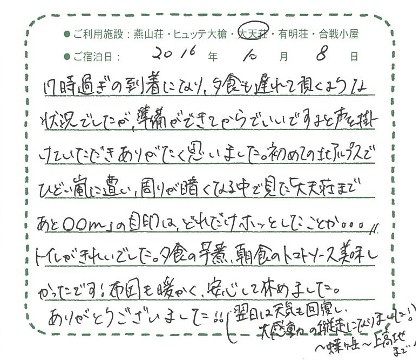 ●ご利用施設：燕山荘・ヒュッテ大槍・大天荘・有明荘・合戦小屋
●ご宿泊日： 2016 年 10 月 8 日
17時過ぎの到着になり、夕食も遅れて頂くような
状況でしたが、準備ができてからでいいですよと声を掛
けていただきありがたく思いました。初めての北アルプスで
ひどい嵐に遭い、周りが暗くなる中で見た「大天荘まで
あと〇〇m」の目印は、どれだけホッとしたことか...。
トイレがきれいでした。夕食の芋煮、朝食のトマトソース美味し
かったです！布団も暖かく、安心して休めました。
ありがとうございました!!
(翌日は天気も回復し、
大感動の縦走になりました！
〜蝶ヶ岳〜上高地
まで